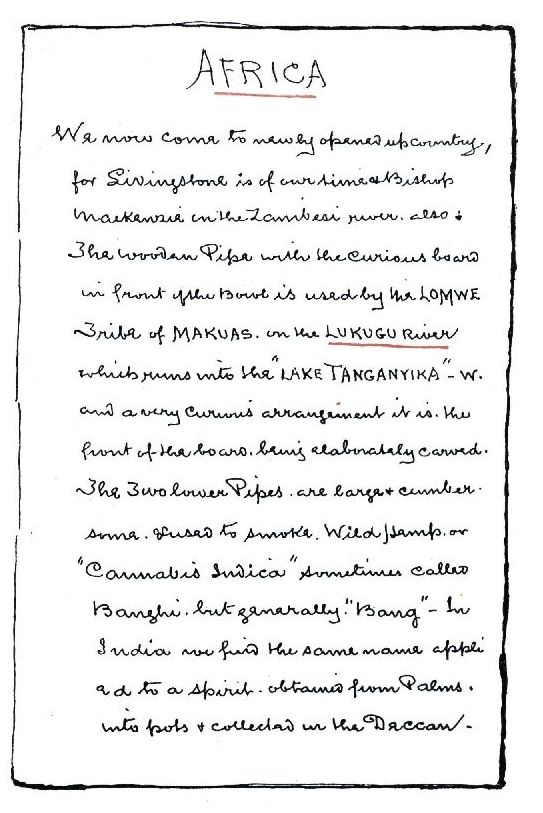 AFRICA
We now come to newly opened up country,
for Livingstone is of our time & Bishop
Mackenzie on the Zambesi river. also :
The wooden Pipe with the curious board
in front of the Bowl is used by the LOMWE
Tribe of MAKUAS. on the LUKUGU River
which runs into the "LAKE TANGANYIKA" - W.
and a very curious arrangement it is. the
front of the board. being elaborately carved.
The Two lower Pipes. are large & cumber.
some. & used to smoke. Wild Hemp. or
"Cannabis Indica" sometimes called
Banghi. but generally. "Bang" - In
India we find the same name appli
ed to a spirit. obtained from Palms.
into pots & collected in the Deccan -